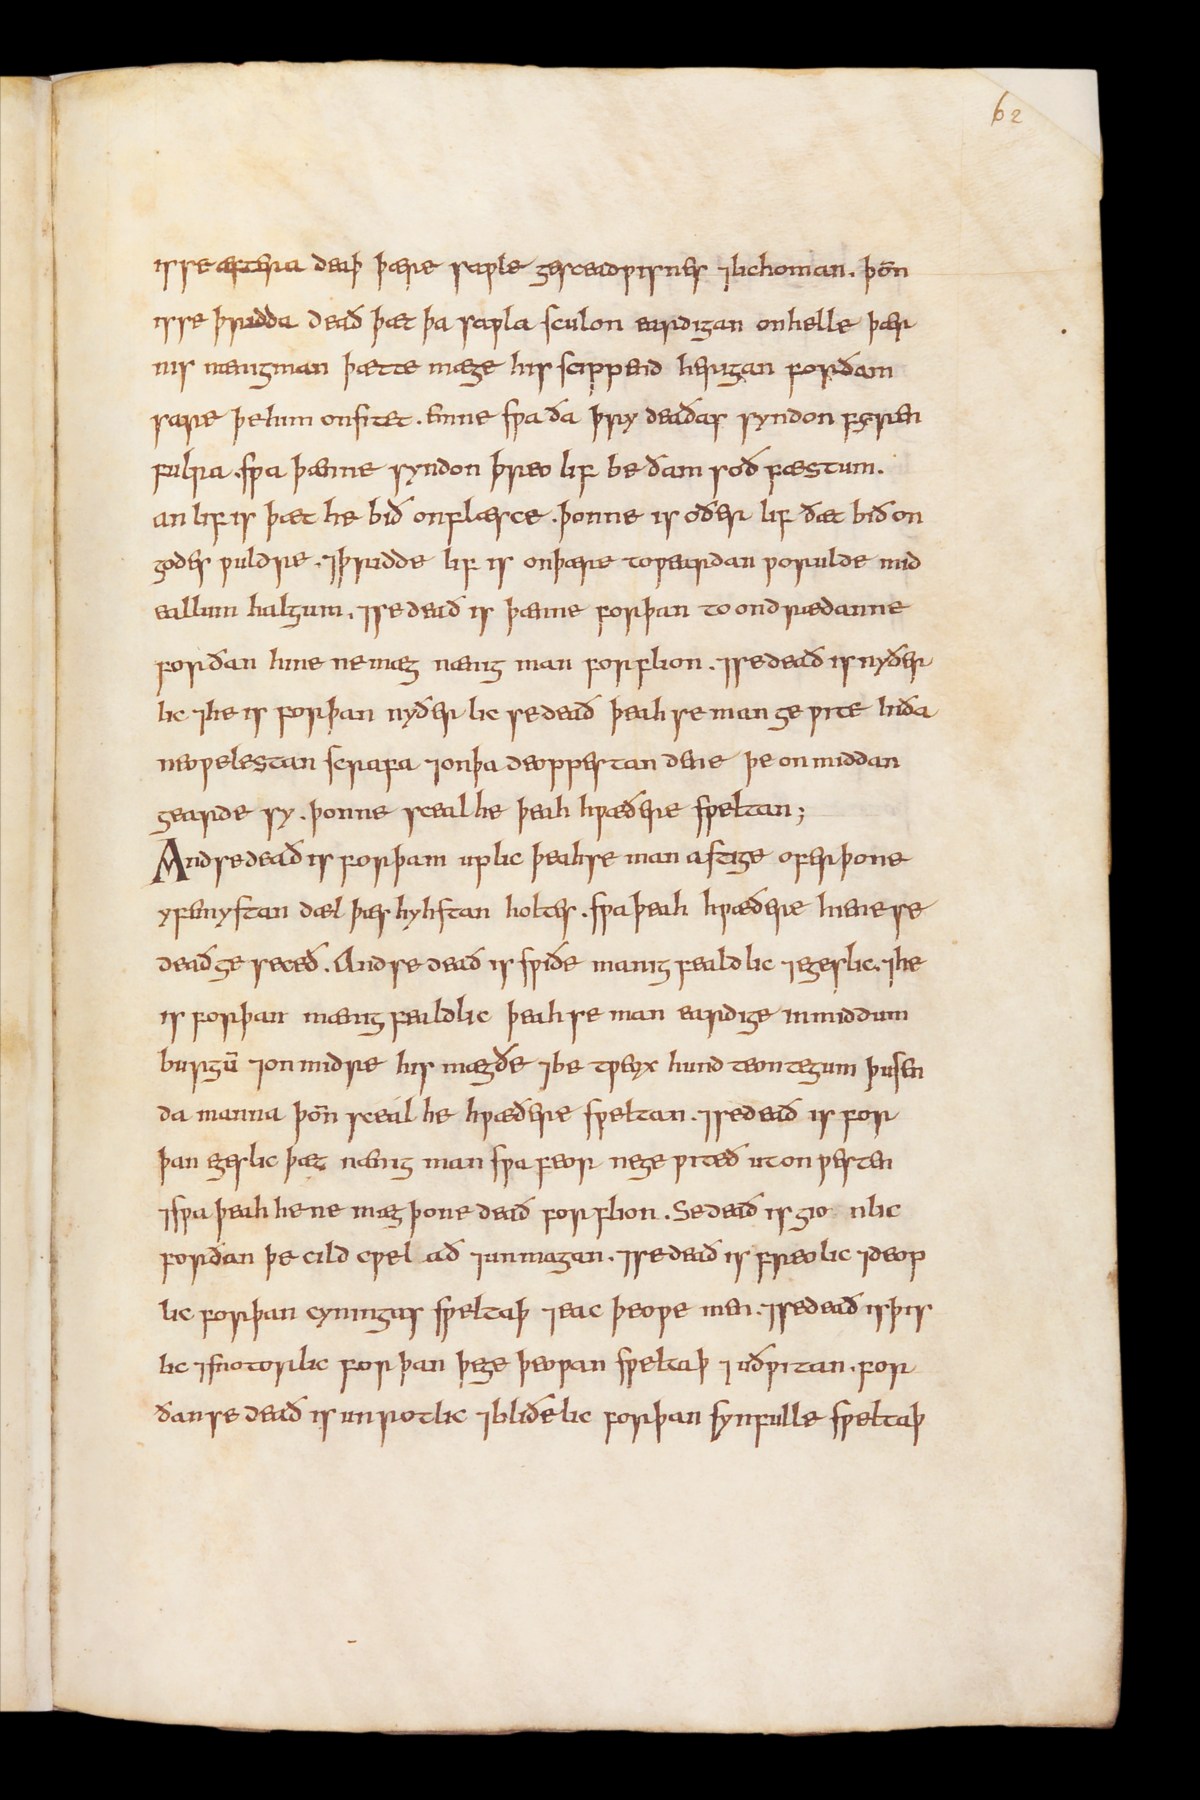 62
is se æfterra deaþ þære saƿle gesceadƿisnes ⁊lichoman. þoñ
is se þridda deað þæt þa saƿla sculon eardigan onhelle þær
nis nænigman þætte mæge his scippend herigan forðam
sare þehim onsitet. ænne sƿa ða þry deaðas syndon feren
fulra. sƿa þænne syndon þreo lif be ðam soð fæstum.
an lif is þæt he bið onflæsce. þonne is oðer lif ðæt bið on
godes ƿuldre. ⁊þridde lif is onþære toƿeardan ƿorulde mid
eallum halgum. ⁊se deað is þænne forþan to ondrædanne
forðan hine ne mæg nænig man forflion. ⁊se deað is nyðer
lic ⁊he is forþan nyðer lic se deað þeah se man ge ƿite inða
neoƿelestan scrafa ⁊onþa deoppestan dene þe on middan
gearde sy. þonne sceal he þeah hƿæðere sƿeltan;
And se deað is forþam uplic þeahse man astige ofer þone
yfemystan dæl þæs hyhstan holtes. sƿa þeah hƿæðere hiene se
deað ge seceð. And se deað is sƿiðe mænig fealdlic ⁊egeslic. ⁊he
is forþan mænig fealdlic þeah se man eardige inmiddum
burgū ⁊on midre his mægðe ⁊be tƿeyx hund teontegum þusen
da manna þoñ sceal he hƿæðere sƿeltan. ⁊se deað is for
þan egeslic þæt nænig man sƿa feor nege ƿiteð ut on ƿesten
⁊sƿa þeah he ne mæg þone deað forflion. Se deað is gio nlic
forðan þe cild cƿel að ⁊iunmagan. ⁊se deað is freolic ⁊deop
lic forþan cyningas sƿeltaþ ⁊eac þeoƿe men. ⁊se deað is þis
lic ⁊snotorlic for þan þege þeoƿan sƿeltaþ ⁊ uðƿitan. for
ðan se deað is unrotlic ⁊bliðelic forþan synfulle sƿeltaþ